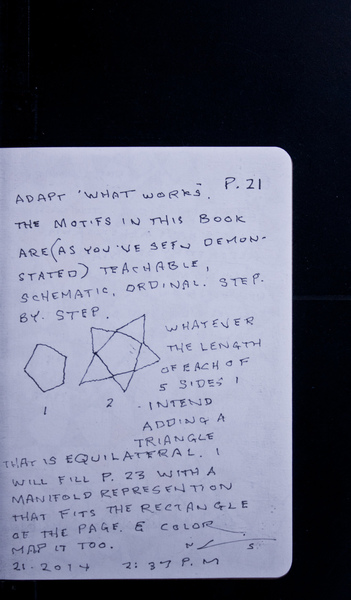 P. 21
ADAPT 'WHAT WORKS'.
THE MOTIFS IN THIS BOOK
ARE (AS YOU'VE SEEN DEMON-
STATED) TEACHABLE,
SCHEMATIC, ORDINAL. STEP.
BY. STEP.
WHATEVER
THE LENGTH
OF EACH OF
5 SIDES I
INTEND
ADDING A
TRIANGLE
1
2
THAT IS EQUILATERAL. I
WILL FILL P. 23 WITH A
MANIFOLD REPRESENTION
THAT FITS THE RECTANGLE
OF THE PAGE. & COLOR
MAP IT TOO.
N S.
21. 2014 2:37 P.M